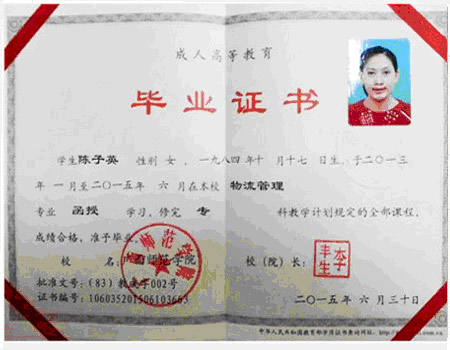 成人高等教育
毕业证书
学生陈子英 性别 女，一九八四年十月十七日生，于二〇一三
年 一月至二〇一五年 六 月在本校 物流管理
专业 函授 学习，修完 专 科教学计划规定的全部课程，
成绩合格，准予毕业。
校 名：广西师范学院 校（院）长：
批准文号：(83) 教成字002号
证书编号：106035201506103663 二〇一五年 六 月三十日
中华人民共和国教育部学历证书查询网址：